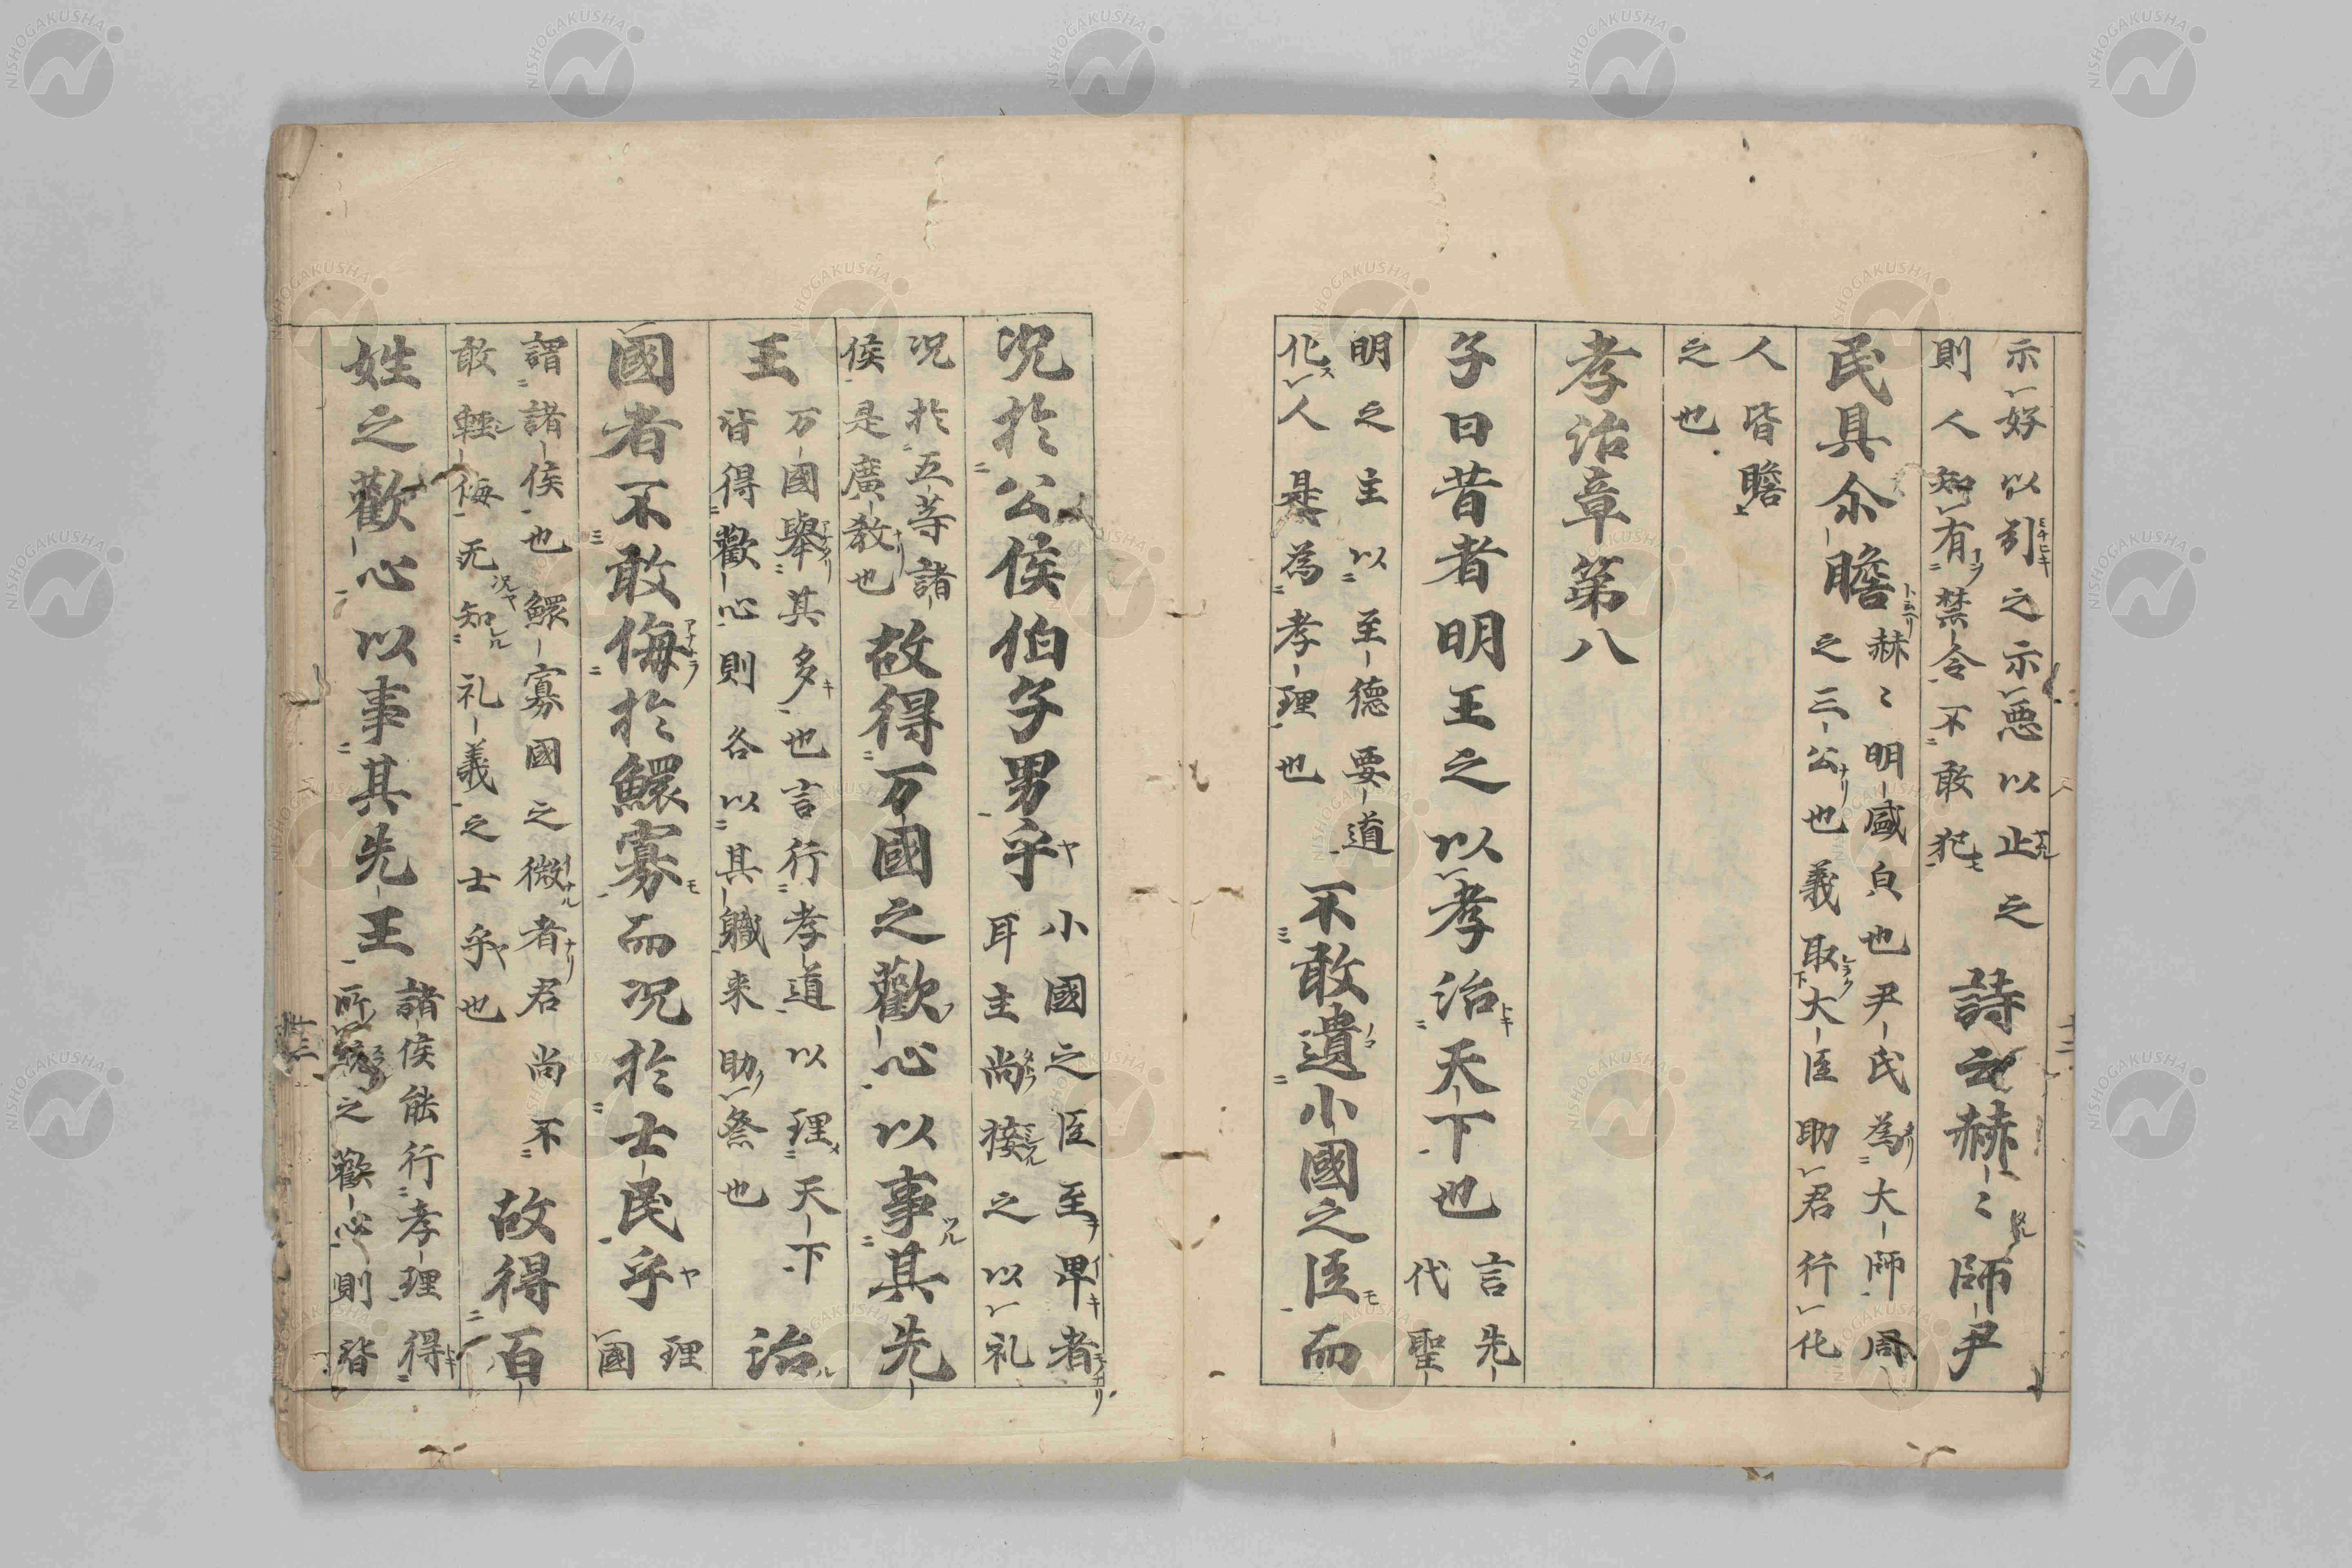 示好以引之示惡以止之
則人知有禁令不敢犯
詩云赫〻師尹
民具尒瞻
赫〻明盛皃也尹氏為大師周
之三公也義取大臣助君行化
人皆瞻
之也
孝治章第八
子曰昔者明王之以孝治天下也
言先
代聖
明之主以至德要道
化人是為孝理也
不敢遺小國之臣而
况於公侯伯子男乎
小國之臣至卑者
耳主尚接之以礼
况於五等諸
侯是廣教也
故得万國之歡心以事其先
王
万國舉其多也言行孝道以理天下
皆得歡心則各以其職来助祭也
治
國者不敢侮於鰥寡而况於士民乎
理
國
謂諸侯也鰥寡國之微者君尚不
敢輕侮况无知礼義之士乎也
故得百
姓之歡心以事其先王
諸侯能行孝理得
所統之歡心則皆